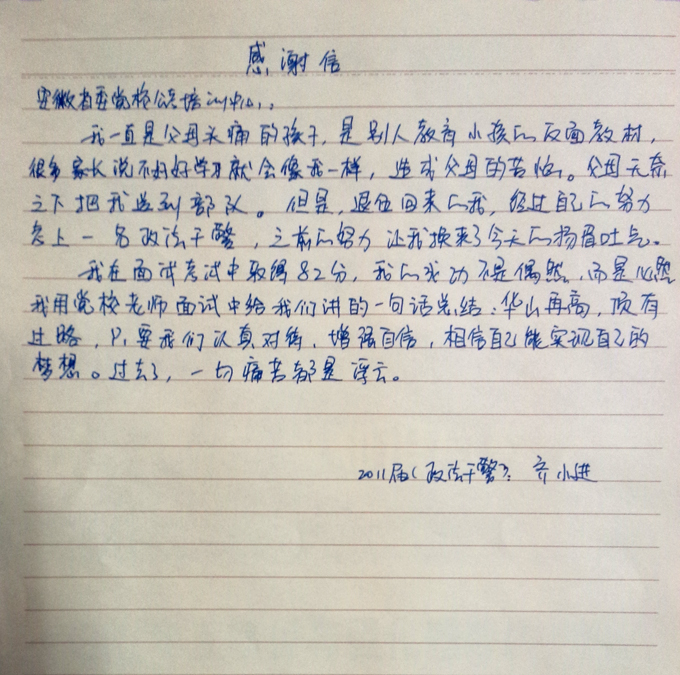 感谢信
安徽省委党校公务员培训中心：
我一直是父母头痛的孩子，是别人教育小孩的反面教材，
很多家长说不好好学习就会像我一样，造成父母的苦恼。父母无奈
之下把我送到部队。但是，退伍回来的我，经过自己的努力
考上一名政法干警，之前的努力让我换来了今天的扬眉吐气。
我在面试考试中取得82分，我的成功不是偶然，而是必然
我用党校老师面试中给我们讲的一句话总结：华山再高，顶有
过路，只要我们认真对待，增强自信，相信自己能实现自己的
梦想。过去了，一切痛苦都是浮云。
2011届（政法干警）：齐小进